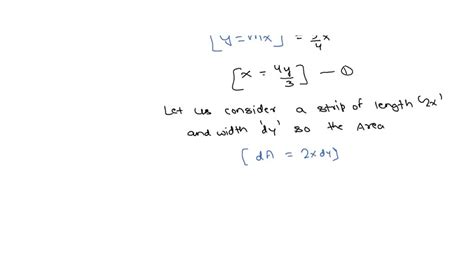 [y=mx] = 3/4 x
[x = 4y/3] — ①
Let us consider a strip of length '2x'
and width 'dy' so the Area
[dA = 2xdy]